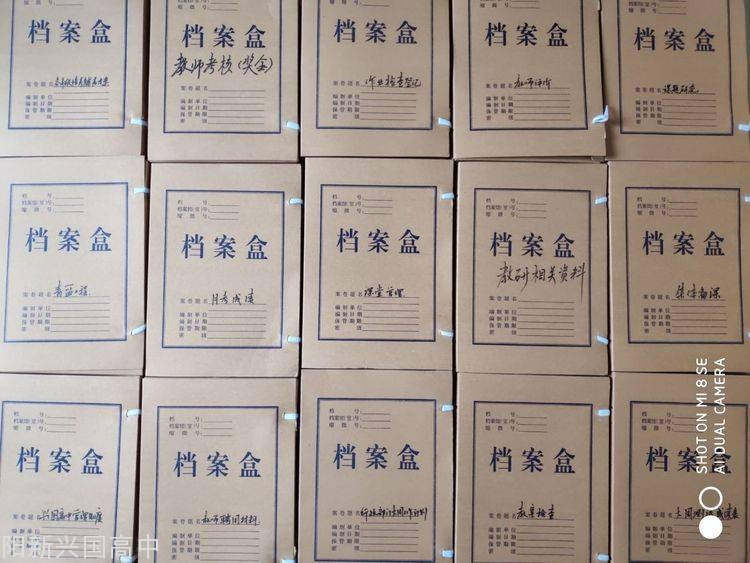 缩 微 号:
档案盒
案 卷 题 名
编 制 单 位
编 制 日 期
保 管 期 限
密 级
档案盒
教师考核(奖金)
案 卷 题 名
编 制 单 位
编 制 日 期
保 管 期 限
密 级
缩 微 号:
档案盒
案 卷 题 名 作业检查登记
编 制 单 位
编 制 日 期
保 管 期 限
密 级
档案盒
案 卷 题 名 教师评价
编 制 单 位
编 制 日 期
保 管 期 限
密 级
缩 微 号:
档案盒
案 卷 题 名 课题研究
编 制 单 位
编 制 日 期
保 管 期 限
密 级
档 号:
档案馆(室)号:
缩 微 号:
档案盒
案 卷 题 名 青蓝工程
编 制 单 位
编 制 日 期
保 管 期 限
密 级
档 号:
档案馆(室)号:
缩 微 号:
档案盒
案 卷 题 名 月考成绩
编 制 单 位
编 制 日 期
保 管 期 限
密 级
档 号:
档案馆(室)号:
缩 微 号:
档案盒
案 卷 题 名 课堂管理
编 制 单 位
编 制 日 期
保 管 期 限
密 级
档 号:
档案馆(室)号:
缩 微 号:
档案盒
教研相关资料
案 卷 题 名
编 制 单 位
编 制 日 期
保 管 期 限
密 级
档 号:
档案馆(室)号:
缩 微 号:
档案盒
案 卷 题 名 集体备课
编 制 单 位
编 制 日 期
保 管 期 限
密 级
档 号:
档案馆(室)号:
缩 微 号:
档案盒
案 卷 题 名 兴国高中管理制度
编 制 单 位
编 制 日 期
保 管 期 限
密 级
档 号:
档案馆(室)号:
缩 微 号:
档案盒
案 卷 题 名 教师聘用材料
编 制 单 位
编 制 日 期
保 管 期 限
密 级
档 号:
档案馆(室)号:
缩 微 号:
档案盒
案 卷 题 名
编 制 单 位
编 制 日 期
保 管 期 限
密 级
档 号:
档案馆(室)号:
缩 微 号:
档案盒
案 卷 题 名 教案检查
编 制 单 位
编 制 日 期
保 管 期 限
密 级
档 号:
档案馆(室)号:
缩 微 号:
档案盒
案 卷 题 名
编 制 单 位
编 制 日 期
保 管 期 限
密 级
SHOT ON MI 8 SE
AI DUAL CAMERA
阳新兴国高中